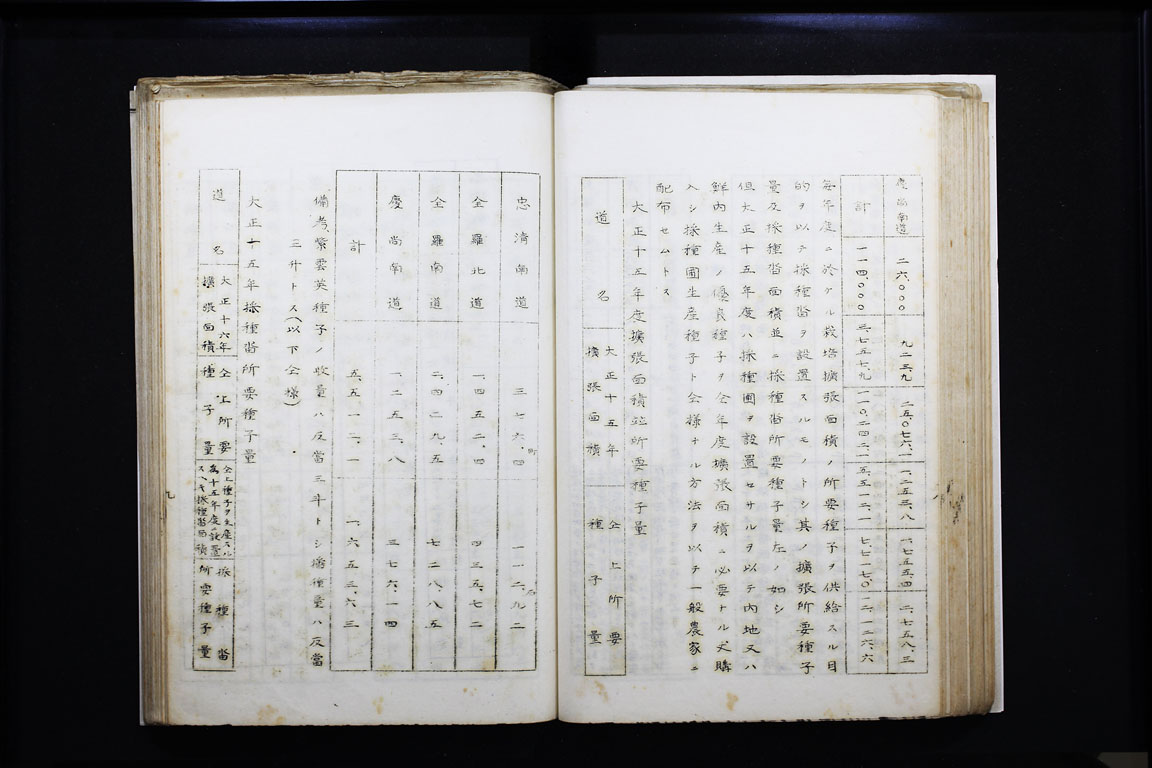 慶尚南道 二六,〇〇〇 九二三九 二五,〇七六,一 一,二五三,八 一,七五五,四 二,七五八,三
計 一一四,〇〇〇 三七五七九 一一〇,二四二,一 五,五一二,一 七七一七,〇 二,一二六,六
毎年度ニ於ケル栽培擴張面積ノ所要種子ヲ供給スル目
的ヲ以テ採種畓ヲ設置スルモノトシ其ノ擴張所要種子
量及採種畓面積並ニ採種畓所要種子量左ノ如シ
但大正十五年度ハ採種圃ヲ設置セサルヲ以テ内地又ハ
鮮内生産ノ優良種子ヲ仝年度擴張面積ニ必要ナル丈購
入シ採種圃生産種子ト仝様ナル方法ヲ以テ一般農家ニ
配布セムトス
大正十五年度擴張面積並所要種子量
道名 大正十五年擴張面積 仝上所要種子量
忠清南道 三七六,四町 一一二,九二石
全羅北道 一,四五二,四 四三五,七二
全羅南道 二,四二九,五 七二八,八五
慶尚南道 一,二五三,八 三七六,一四
計 五,五一二,一 一,六五三,六三
備考紫雲英種子ノ收量ハ反當三斗トシ播種量ハ反當
三升トス(以下仝様)
大正十五年採種畓所要種子量
道名 大正十六年擴張面積 仝上所要種子量 仝上種子ヲ生産スル為十五年度ニ設置スヘキ採種畓面積 採種畓所要種子量